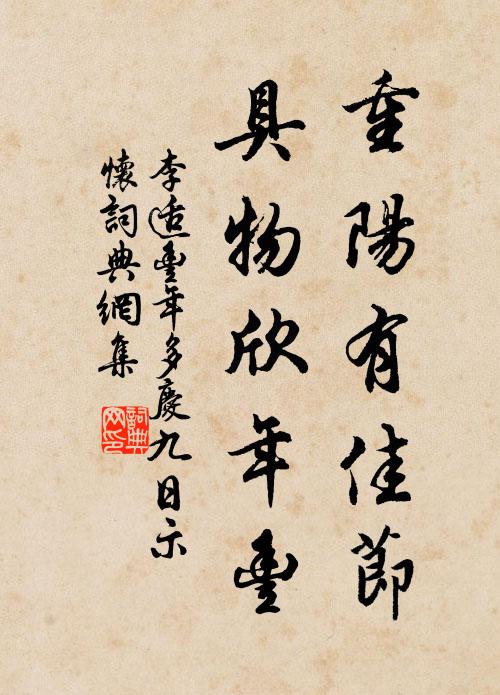 重陽有佳節
具物欣年豐
李适豐年多慶九日示
懷詞典網集
詞典
网印